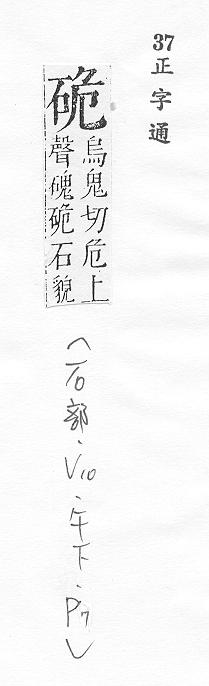 37正字通
硊
烏鬼切危上
聲磈硊石貌
（石部．V10．午下．P7）